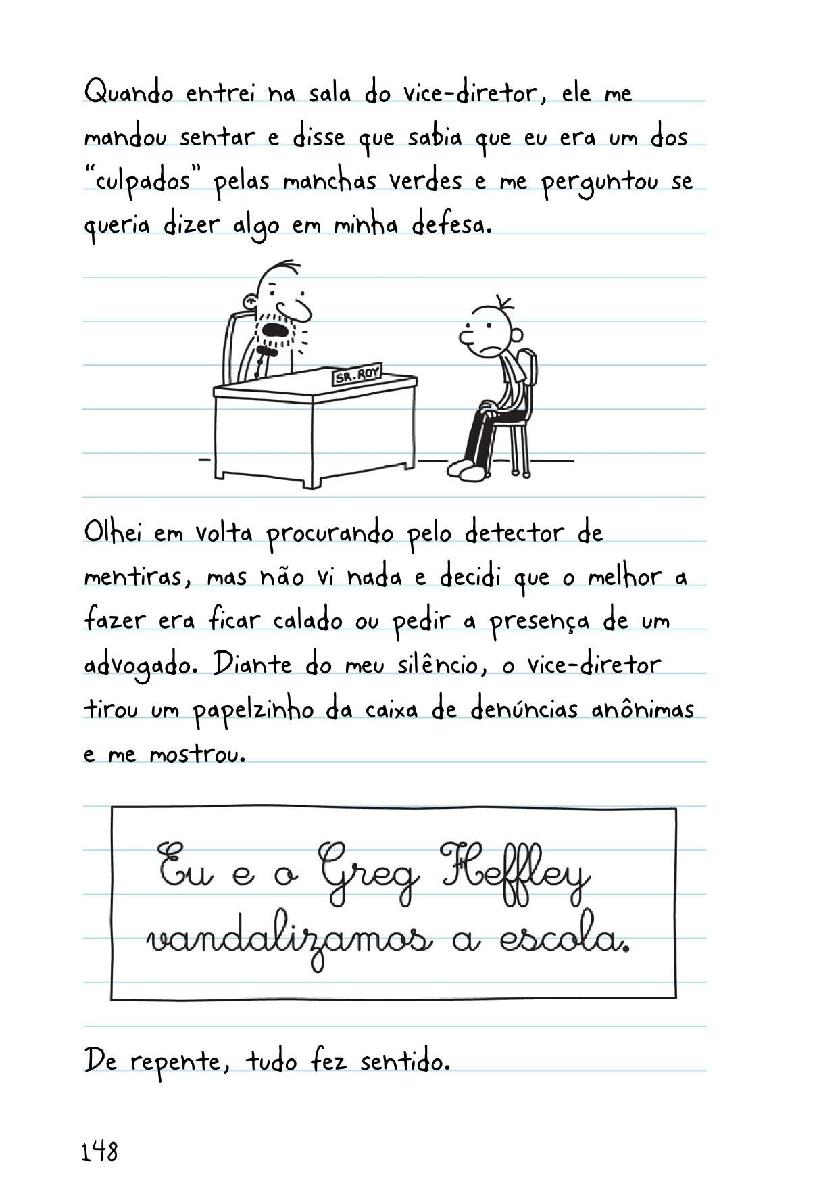 Quando entrei na sala do vice-diretor, ele me
mandou sentar e disse que sabia que eu era um dos
"culpados" pelas manchas verdes e me perguntou se
queria dizer algo em minha defesa.
SR. ROY
Olhei em volta procurando pelo detector de
mentiras, mas não vi nada e decidi que o melhor a
fazer era ficar calado ou pedir a presença de um
advogado. Diante do meu silêncio, o vice-diretor
tirou um papelzinho da caixa de denúncias anônimas
e me mostrou.
Eu e o Greg Heffley
vandalizamos a escola.
De repente, tudo fez sentido.
148